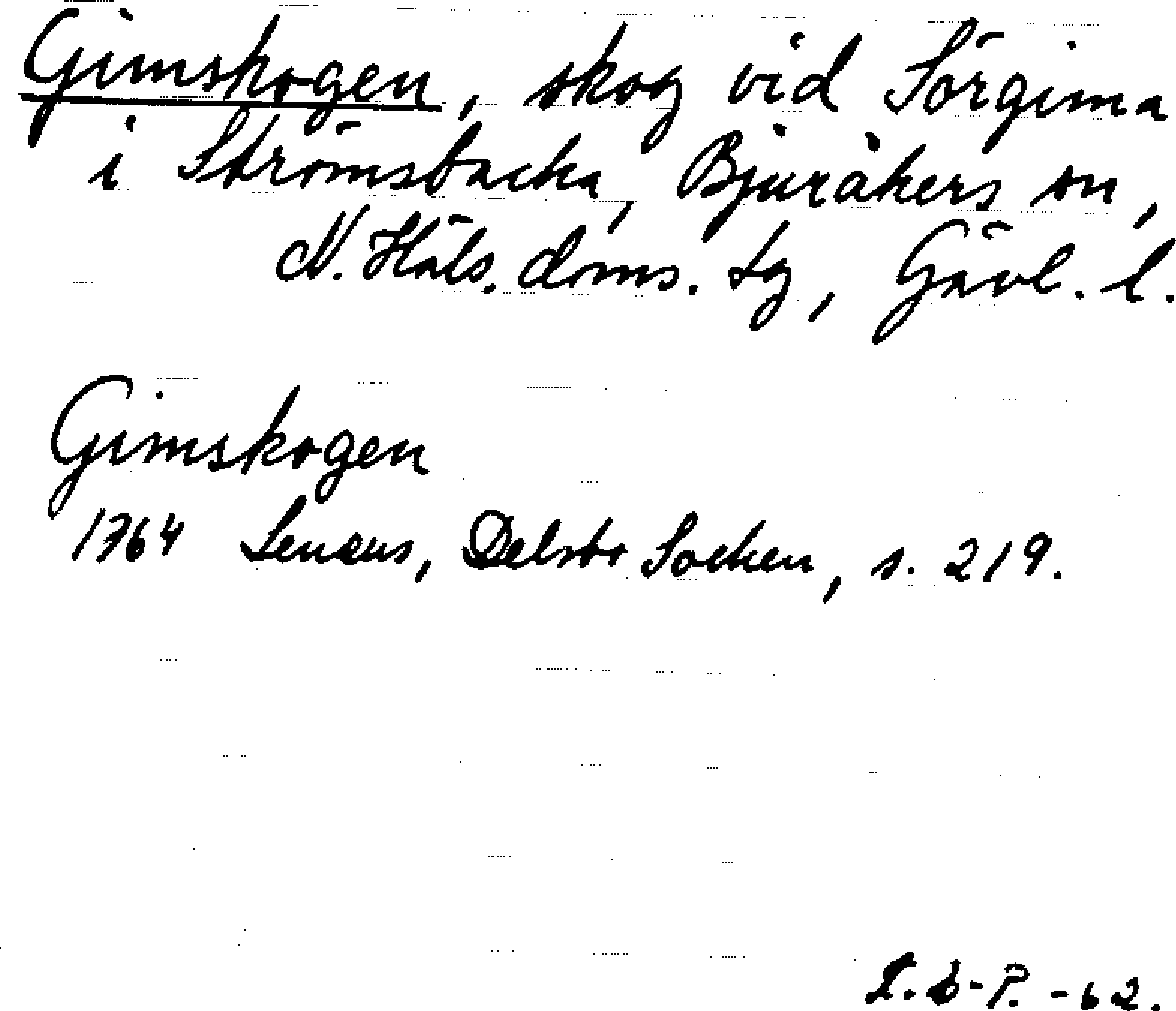 Gimskogen, skog vid Sörgima
i Strömsbacka, Bjuråkers sn,
N. Häls. doms. tg, Gävl. l.
Gimskogen
1764 Lenæus, Delsbo Socken, s. 219.
-62.